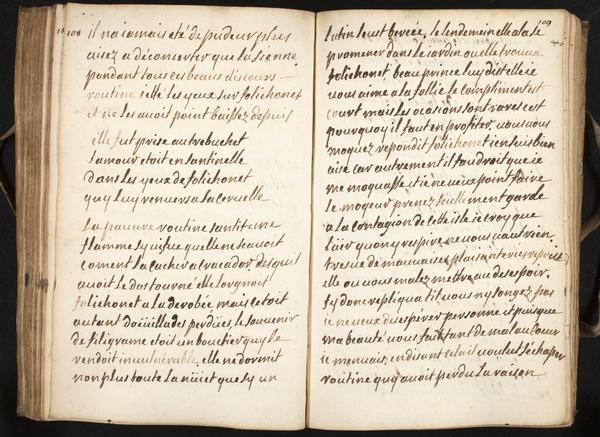 108
il na iamais eté de pudeur plus
aisez a déconcerter que la sienne
pandant tous ces beaux discours
routine iette les yeux sur folichonet
et ne les auoit point baissez depuis
elle fut prise au trebuchet
lamour etoit en santinelle
dans les yeux de folichonet
quy luy renuersa la ceruelle
la pauure routine santit une
flamme sy uifue quelle ne scauoit
coment la cacher a
auoit le dos tourné elle lorgnoit
folichonet a la derobée mais cetoit
autant dœuillades perdues, le souuenir
de filigrame etoit un bouclier quy le
rendoit inuulnérable, elle ne dormit
non plus toute la nuiet que sy un
109
lutin leust bercée, le lendemain elle ala se
promener dans le iardin ou elle trouua
folichonet, beau prince luy dit elle ie
uous aime a la follie le compliment est
court mais les ocations sont rares et
pourquoy il faut en profiter, uous uous
moquez repondit folichonet i en suis bien
aise car autrement il faudroit que ie
me moquasse et ie ne ueux point faire
le moqeur prenez seullement garde
a la contagion de cette isle ie croy que
lair quon y respire ne uous uaut rien
tresue de mauuaises plaisanteries reprit
elle ou uous malez mettre au desespoir,
fy donc repliqua t il uous ny songez pas
ie ne ueux desesperer personne et puisque
ma beauté uous fait tant de mal au cœur
ie men uais, en disant cela il uoulut sechaper
routine quy auoit perdu la raison